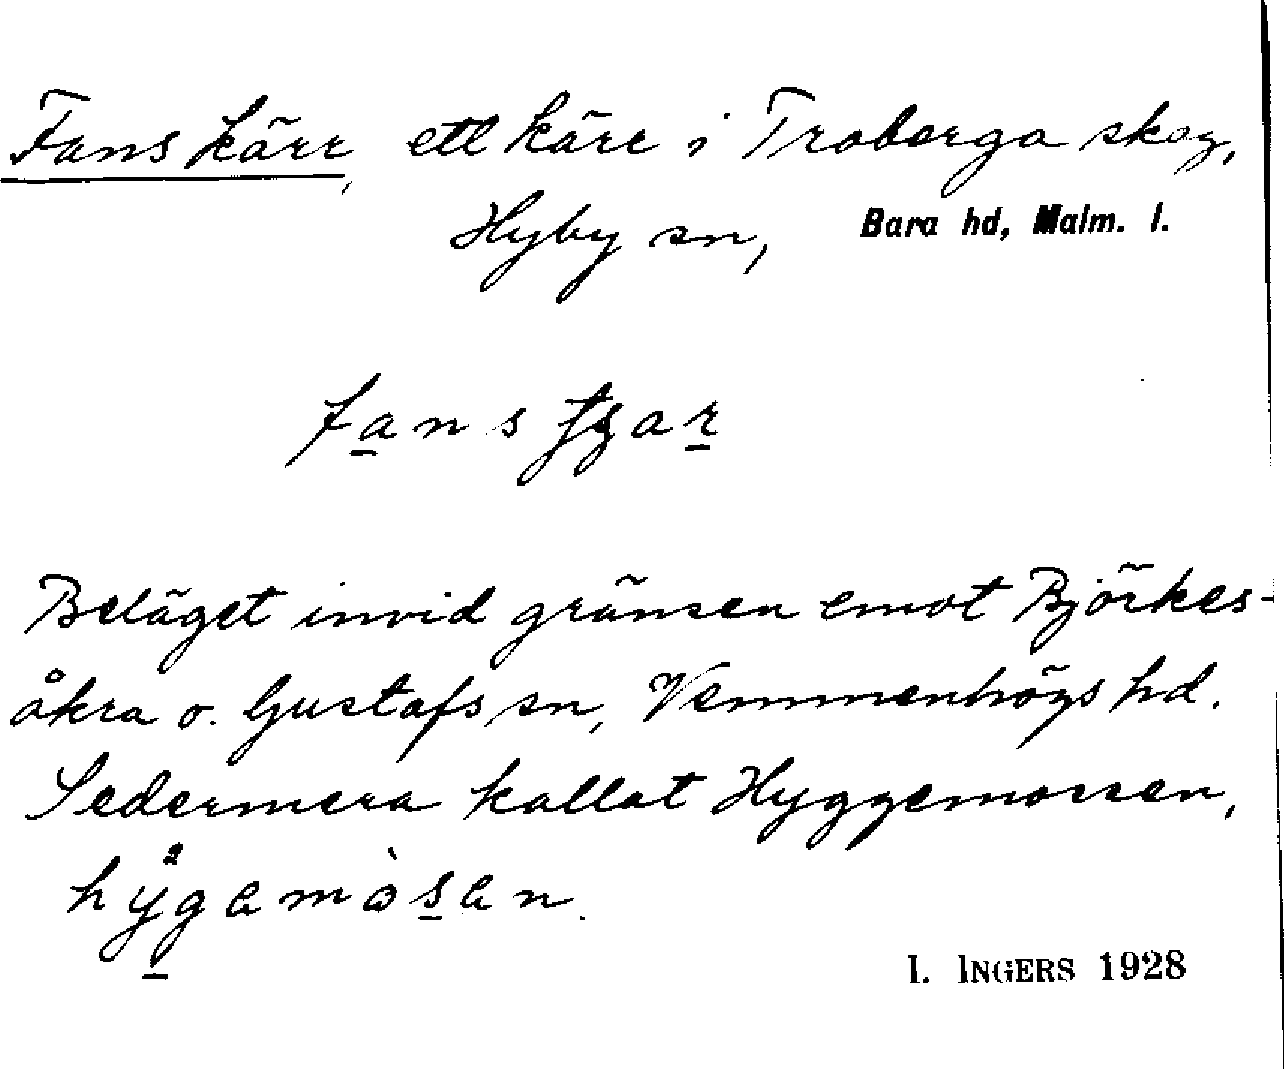 Fans kärr, ett kärr i Troberga skog,
Hyby sn, Bara hd, Malm. l.
Beläget invid gränsen emot Björkes-
åkra o. Gustafs sn, Vemmenhögs hd.
Sedermera kallat Hyggemossen,
I. INGERS 1928